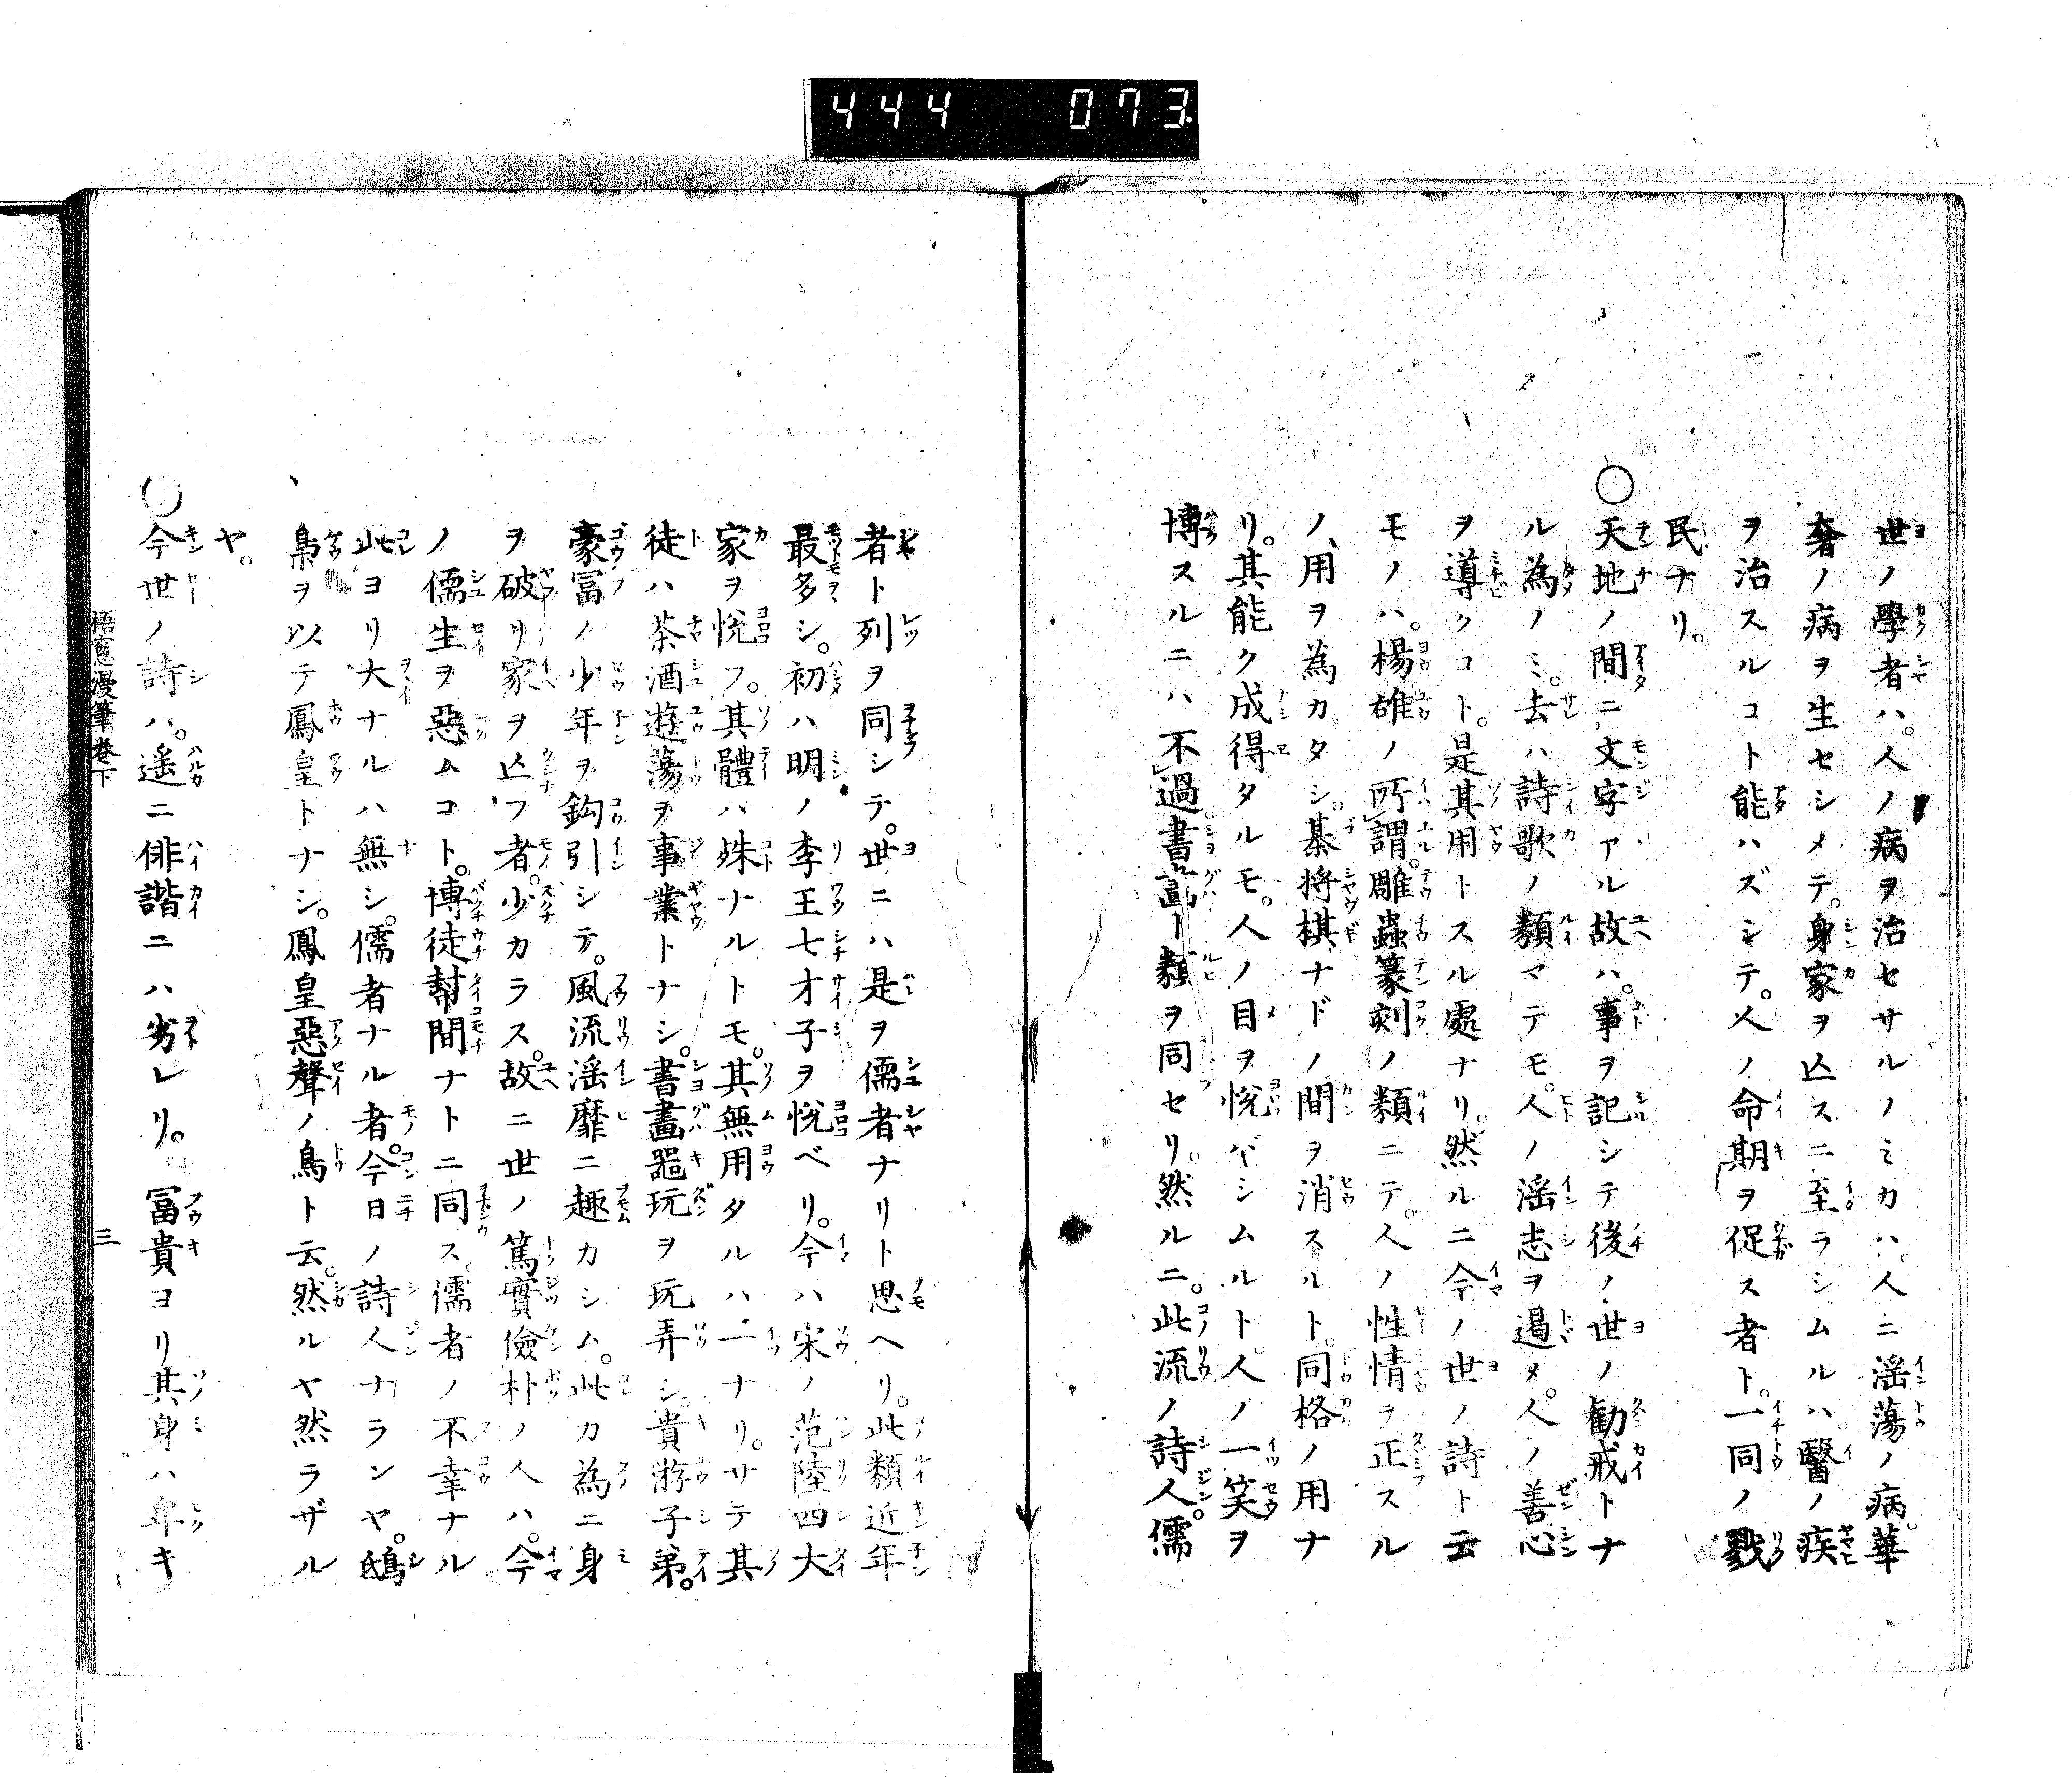 444 073
世ノ學者ハ。人ノ病ヲ治セサルノミカハ。人ニ淫蕩ノ病。華
奢ノ病ヲ生セシメテ。身家ヲ亾スニ至ラシムルハ。醫ノ疾
ヲ治スルコト能ハズシテ。人ノ命期ヲ促ス者ト。一同ノ戮
民ナリ。
〇天地ノ間ニ文字アル故ハ。事ヲ記シテ後ノ世ノ勧戒トナ
ル為ノミ。去ハ詩歌ノ類マテモ。人ノ淫志ヲ遏メ。人ノ善心
ヲ導クコト。是其用トスル處ナリ。然ルニ今ノ世ノ詩ト云
モノハ。楊雄ノ所謂。雕蟲篆刻ノ類ニテ。人ノ性情ヲ正スル
ノ用ヲ為カタシ。棊将棋ナドノ間ヲ消スルト。同格ノ用ナ
リ。其能ク成得タルモ。人ノ目ヲ悦バシムルト。人ノ一笑ヲ
博スルニハ不過。書畫ト類ヲ同セリ。然ルニ。此流ノ詩人。儒
者ト列ヲ同シテ。世ニハ是ヲ儒者ナリト思ヘリ。此類近年
最多シ。初ハ明ノ李王七才子ヲ悦ベリ。今ハ宋ノ范陸四大
家ヲ悦フ。其體ハ殊ナルトモ。其無用タルハ一ナリ。サテ其
徒ハ茶酒遊蕩ヲ事業トナシ。書畫噐玩ヲ玩弄シ。貴游子弟。
豪冨ノ少年ヲ鈎引シテ。風流淫靡ニ趣カシム。此カ為ニ身
ヲ破リ家ヲ亾フ者。少カラス。故ニ世ノ篤實儉朴ノ人ハ。今
ノ儒生ヲ惡ムコト。博徒幇間ナトニ同ス。儒者ノ不幸ナル
此ヨリ大ナルハ無シ。儒者ナル者。今日ノ詩人ナランヤ。鴟
梟ヲ以テ鳳皇トナシ。鳳皇惡聲ノ鳥ト云。然ルヤ然ラザル
ヤ。
〇今世ノ詩ハ。遥ニ俳諧ニハ劣レリ。冨貴ヨリ其身ハ卑キ
梧窓漫筆巻下 三